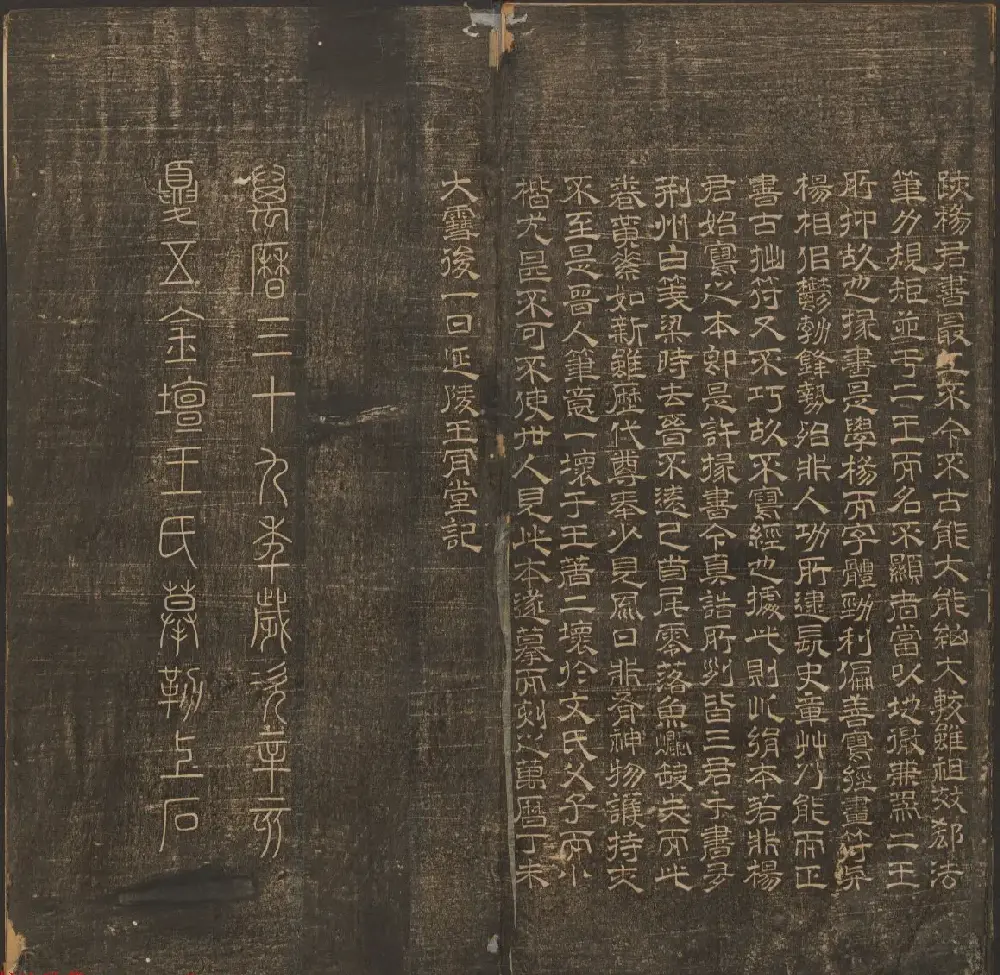 跋楊君書最工不今不古能大能細大較雖祖效郄法
筆力規矩並于二王而名不顯者當以地微兼爲二王
所抑故也掾書是學楊而字體勁利偏善寫經畫符與
楊相佀鬱勃鋒勢殆非人功所逮長史章艸乃能而正
書古拙符又不巧故不寫經也據此則此絹本若非楊
君始寫之本郎是許掾書今真誥所列皆三君手書多
荊州白箋梁時去晉不遠已首尾零落魚爛缺失而此
卷黃素如新雖歷代尊奉少見風日非有神物護持文
不至是晉人筆意一壞于王著二壞於文氏父子而小
楷尤甚不可不使世人見此本遂摹而刻之萬曆丁未
大雪後一日延陵王肎堂記
萬曆三十九年歲次辛亥
夏五金壇王氏摹勒上石